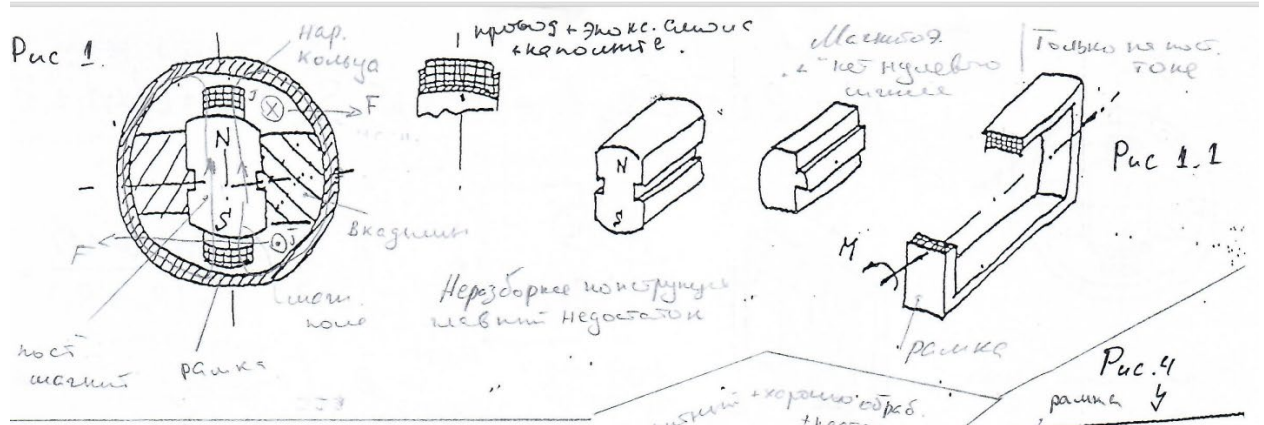 Рис 1.
нар.
кольца
J
F
N
S
F
J
вкадыши
магн.
поле
пост
магнит
рамка
провод + эпокс. смола
+наполните.
N
S
Неразборная конструкция
главный недостаток
Магнитоэ.
нет нулевого
Только на пост.
токе
Рис 1.1
M
рамка
+хорошо обраб.
Рис.4
рамка